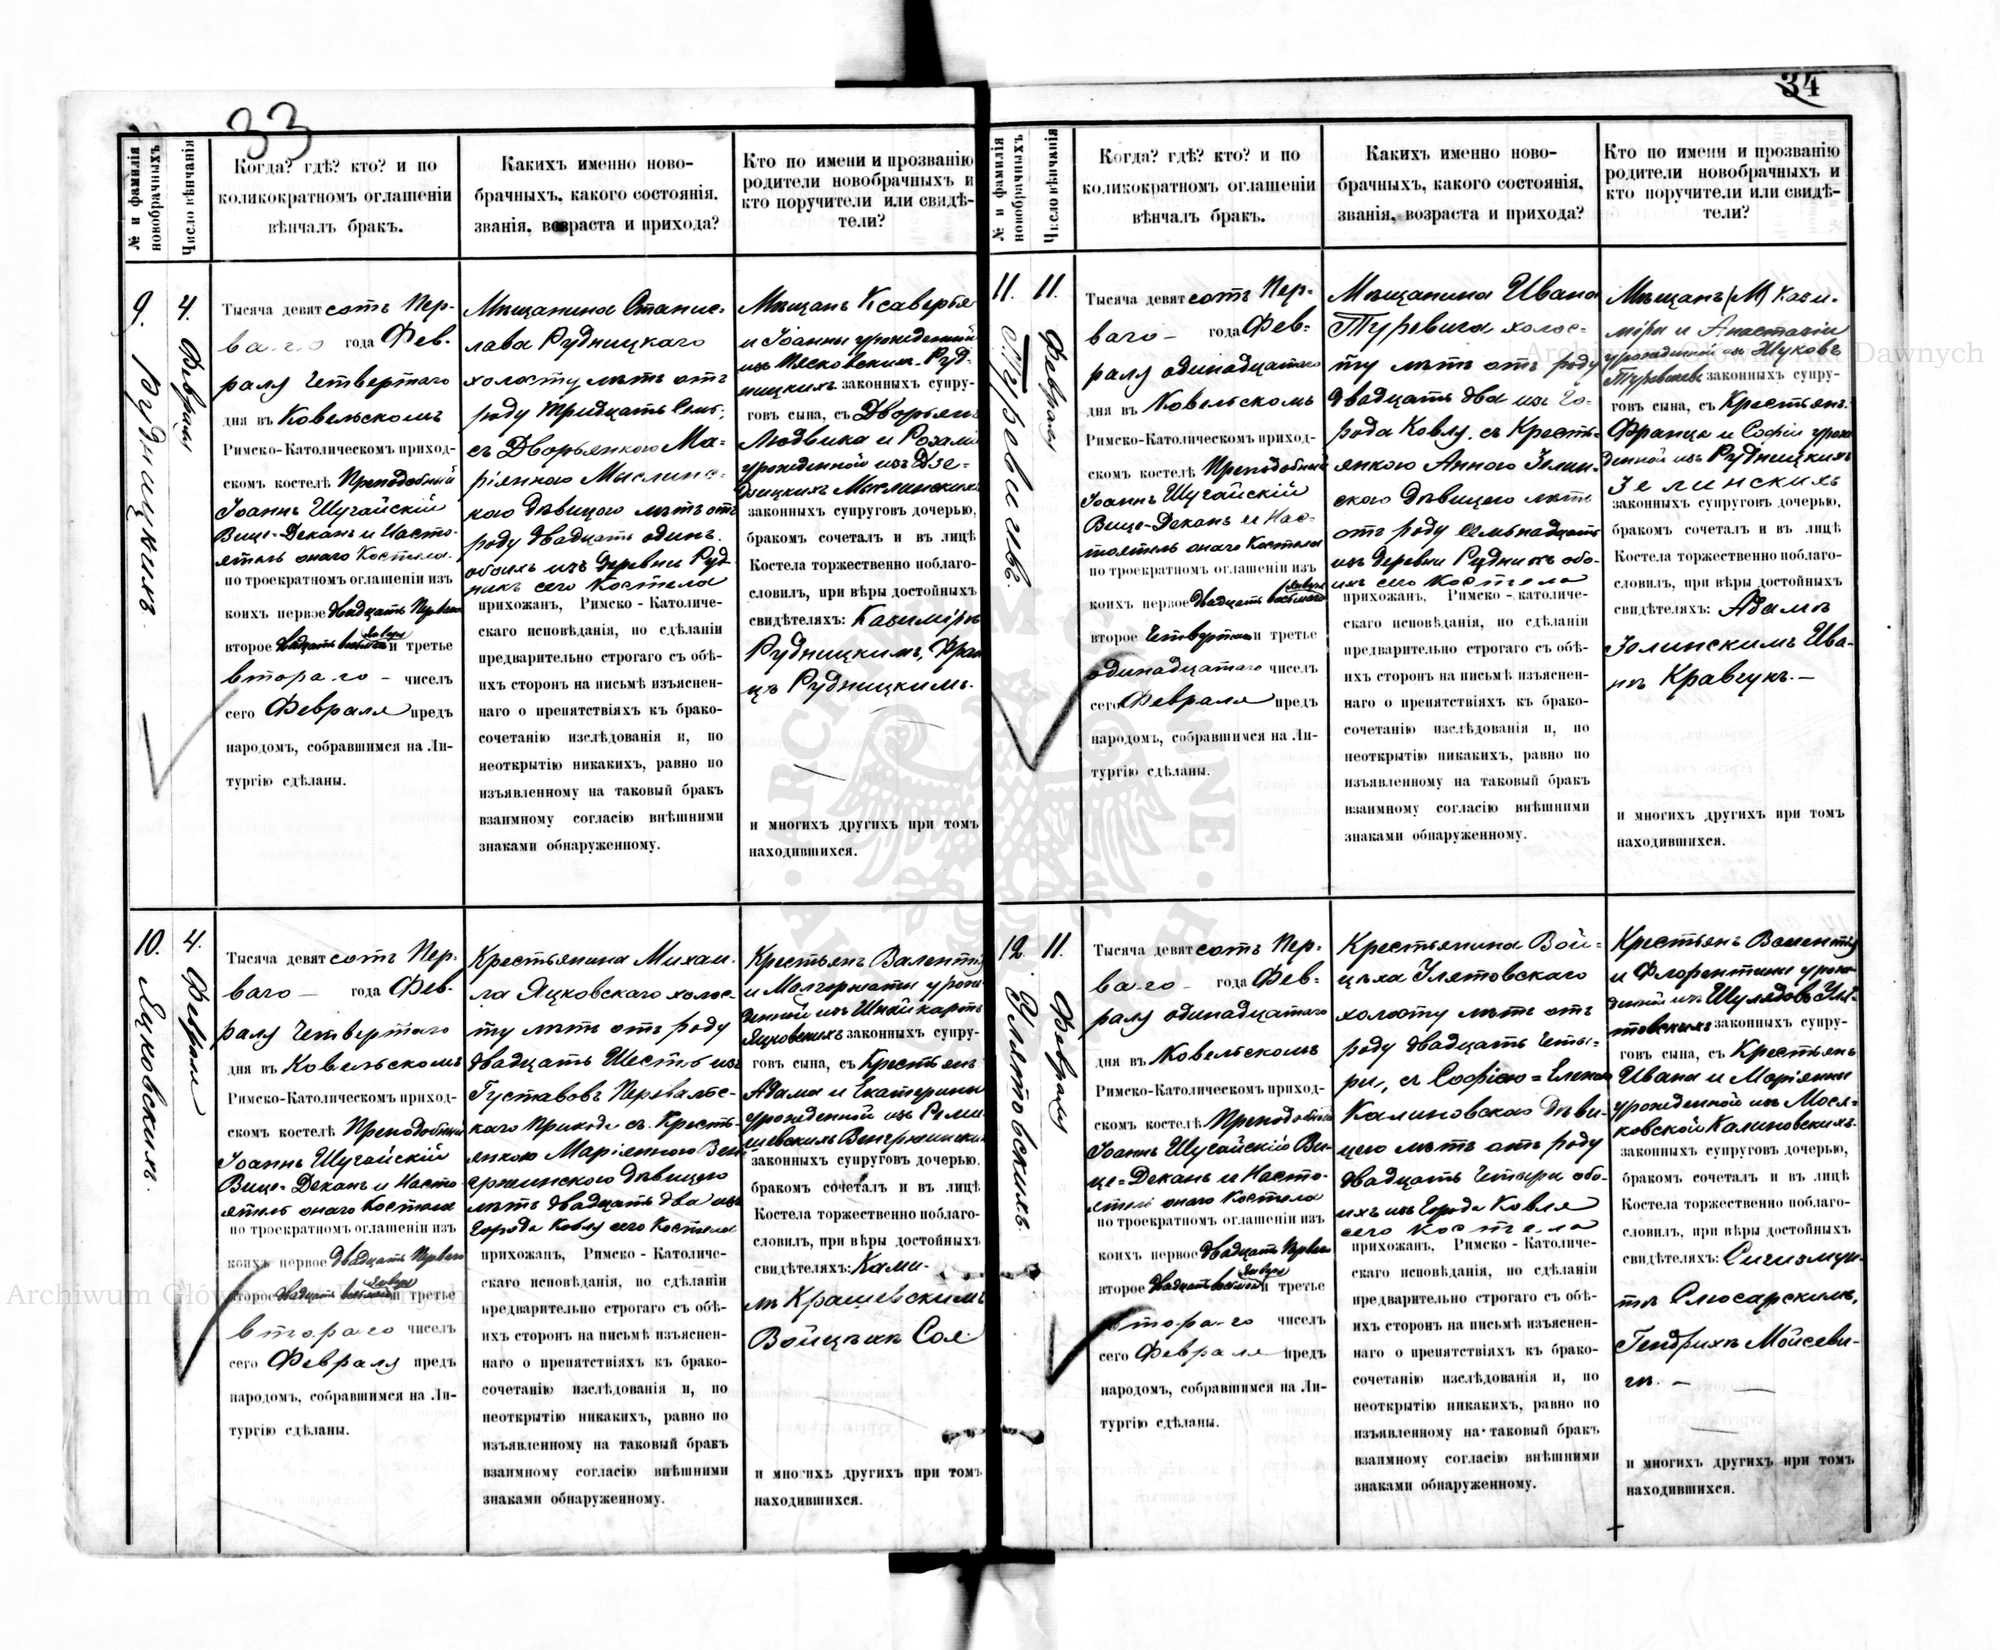 33
№ и фамилія новобрачныхъ.
Число вѣнчанія
Когда? гдѣ? кто? и по
коликократномъ оглашеніи
вѣнчалъ бракъ.
Какихъ именно ново-
брачныхъ, какого состоянія,
званія, возраста и прихода?
Кто по имени и прозванію
родители новобрачныхъ и
кто поручители или свидѣ-
тели?
9.
Рудницкихъ.
4.
Февраля
Тысяча девятсотъ Пер-
ваго года Фев-
раля Четвертаго
дня въ Ковельскомъ
Римско-Католическомъ приход-
скомъ костелѣ Преподобный
Іоаннъ Шугайскій
Вице-Деканъ и Насто-
ятель онаго Костела.
по троекратномъ оглашеніи изъ
коихъ первое двадцать Перваго
второе двадцать восьмаго Января и третье
втораго – чиселъ
сего Февраля предъ
народомъ, собравшимся на Ли-
тургію сдѣланы.
Мѣщанина Станис-
лава Рудницкаго
холосту лѣтъ отъ
роду тридцать семь,
съ Дворянкою Ма-
ріянною Мыслинс-
кою дѣвицею лѣтъ отъ
роду двадцать одинъ.
обоихъ изъ деревни Руд-
никъ сего Костела
прихожан, Римско - Католиче-
скаго исповѣданія, по сдѣланіи
предварительно строгаго съ обѣ-
ихъ сторонъ на письмѣ изъяснен-
наго о препятствіяхъ къ брако-
сочетанію изслѣдованія и, по
неоткрытію никакихъ, равно по
изъявленному на таковый бракъ
взаимному согласію внѣшними
знаками обнаруженному.
Мѣщанъ Ксаверія
и Іоанны урожденной
изъ Руд-
ницкихъ законныхъ супру-
говъ сына, съ Дворянъ
Людвика и Розаліи
урожденной изъ Дзе-
Мыслинскихъ
законныхъ супруговъ дочерью,
бракомъ сочеталъ и въ лицѣ
Костела торжественно поблаго-
словилъ, при вѣры достойныхъ
свидѣтеляхъ: Казиміръ
Рудницкимъ, Фран
цъ Рудницкимъ.
и многихъ другихъ при томъ
находившихся.
10.
Яцковскихъ.
4.
Февраля
Тысяча девятсотъ Пер-
ваго – года Фев-
раля Четвертаго
дня въ Ковельскомъ
Римско-Католическомъ приход-
скомъ костелѣ Преподобный
Іоаннъ Шугайскій
Вице-Деканъ и Насто
ятель онаго Костела
по троекратномъ оглашеніи изъ
коихъ первое двадцать Перваго
второе двадцать восьмаго Января и третье
втораго чиселъ
сего Февраля предъ
народомъ, собравшимся на Ли-
тургію сдѣланы.
Крестьянина Михаи-
ла Яцковскаго холос-
ту лѣтъ отъ роду
двадцать Шесть изъ
Густавовъ
каго Прихода съ Кресть-
янкою Маріянною Вен
гржинскою дѣвицею
лѣтъ двадцать два изъ
Города Ковля сего Костела
прихожан, Римско - Католиче-
скаго исповѣданія, по сдѣланіи
предварительно строгаго съ обѣ-
ихъ сторонъ на письмѣ изъяснен-
наго о препятствіяхъ къ брако-
сочетанію изслѣдованія и, по
неоткрытію никакихъ, равно по
изъявленному на таковый бракъ
взаимному согласію внѣшними
знаками обнаруженному.
Крестьянъ Валентія
и Малгоржаты урож
денной изъ
Яцковскихъ законныхъ супру-
говъ сына, съ Крестьянъ
Адама и Екатерины
урожденной изъ
Венгржинскихъ
законныхъ супруговъ дочерью,
бракомъ сочеталъ и въ лицѣ
Костела торжественно поблаго-
словилъ, при вѣры достойныхъ
свидѣтеляхъ: Ками-
лъ Крашевскимъ
Войцѣхъ Соя
и многихъ другихъ при томъ
находившихся.
34
№ и фамилія новобрачныхъ
Число вѣнчанія
Когда? гдѣ? кто? и по
коликократномъ оглашеніи
вѣнчалъ бракъ.
Какихъ именно ново-
брачныхъ, какого состоянія,
званія, возраста и прихода?
Кто по имени и прозванію
родители новобрачныхъ и
кто поручители или свидѣ-
тели?
11.
Туревичевъ.
11.
Февраля
Тысяча девятсотъ Пер-
ваго – года Фев-
раля одинадцатаго
дня въ Ковельскомъ
Римско-Католическомъ приход-
скомъ костелѣ Преподобный
Іоаннъ Шугайскій
Вице-Деканъ и Нас-
тоятель онаго Костела
по троекратномъ оглашеніи изъ
коихъ первое двадцать восьмаго Января
второе Четвертаго и третье
одинадцатаго чиселъ
сего Февраля предъ
народомъ, собравшимся на Ли-
тургію сдѣланы.
Мѣщанина Ивана
Туревича холос-
ту лѣтъ отъ роду
двадцать два изъ Го-
рода Ковля, съ Кресть-
янкою Анною Зелин-
скою дѣвицею лѣтъ
отъ роду семьнадцать
изъ деревни Рудникъ обо-
ихъ сего Костела
прихожан, Римско - католиче-
скаго исповѣданія, по сдѣланіи
предварительно строгаго съ обѣ-
ихъ сторонъ на письмѣ изъяснен-
наго о препятствіяхъ къ брако-
сочетанію изслѣдованія и, по
неоткрытію никакихъ, равно по
изъявленному на таковый бракъ
взаимному согласію внѣшними
знаками обнаруженному.
Мѣщанъ (М) Кази-
міра и Анастасіи
урожденной изъ Жуковъ
Туревичевъ законныхъ супру-
говъ сына, съ Крестьянъ
Франца и Софіи урож
денной изъ Рудницкихъ
Зелинскихъ
законныхъ супруговъ дочерью,
бракомъ сочеталъ и въ лицѣ
Костела торжественно поблаго-
словилъ, при вѣры достойныхъ
свидѣтеляхъ: Адамъ
Зелинскимъ Ива-
нъ Кравчукъ. –
и многихъ другихъ при томъ
находившихся.
12.
Улятовскихъ.
11.
Февраля
Тысяча девятсотъ Пер-
ваго – года Фев-
раля одинадцатаго
дня въ Ковельскомъ
Римско-Католическомъ приход-
скомъ костелѣ Преподобный
Іоаннъ Шугайскій Ви-
це-Деканъ и Насто-
ятель онаго Костела
по троекратномъ оглашеніи изъ
коихъ первое двадцать Перваго
второе двадцать восьмаго Января и третье
втораго чиселъ
сего Февраля предъ
народомъ, собравшимся на Ли-
тургію сдѣланы.
Крестьянина Вой-
цѣха Улятовскаго
холосту лѣтъ отъ
роду двадцать Четы-
ри, съ Софіею-Еленою
Калиновскою дѣви-
цею лѣтъ отъ роду
двадцать Четыри обо-
ихъ изъ Города Ковля
сего Костела
прихожан, Римско - Католиче-
скаго исповѣданія, по сдѣланіи
предварительно строгаго съ обѣ-
ихъ сторонъ на письмѣ изъяснен-
наго о препятствіяхъ къ брако-
сочетанію изслѣдованія и, по
неоткрытію никакихъ, равно по
изъявленному на таковый бракъ
взаимному согласію внѣшними
знаками обнаруженному.
Крестьянъ Валентія
и Флорентины урож
денной изъ Шулядовъ Уля-
товскихъ законныхъ супру-
говъ сына, съ Крестьянъ
Ивана и Маріянны
урожденной изъ Мося-
ковской Калиновскихъ
законныхъ супруговъ дочерью,
бракомъ сочеталъ и въ лицѣ
Костела торжественно поблаго-
словилъ, при вѣры достойныхъ
свидѣтеляхъ: Сигизмун-
тъ Слюсарскимъ,
Гендрихъ Мойсеви-
чъ. –
и многихъ другихъ при томъ
находившихся.
Archiwum Główne Akt Dawnych
Archiwum Główne Akt Dawnych
ARCHIWUM GŁÓWNE